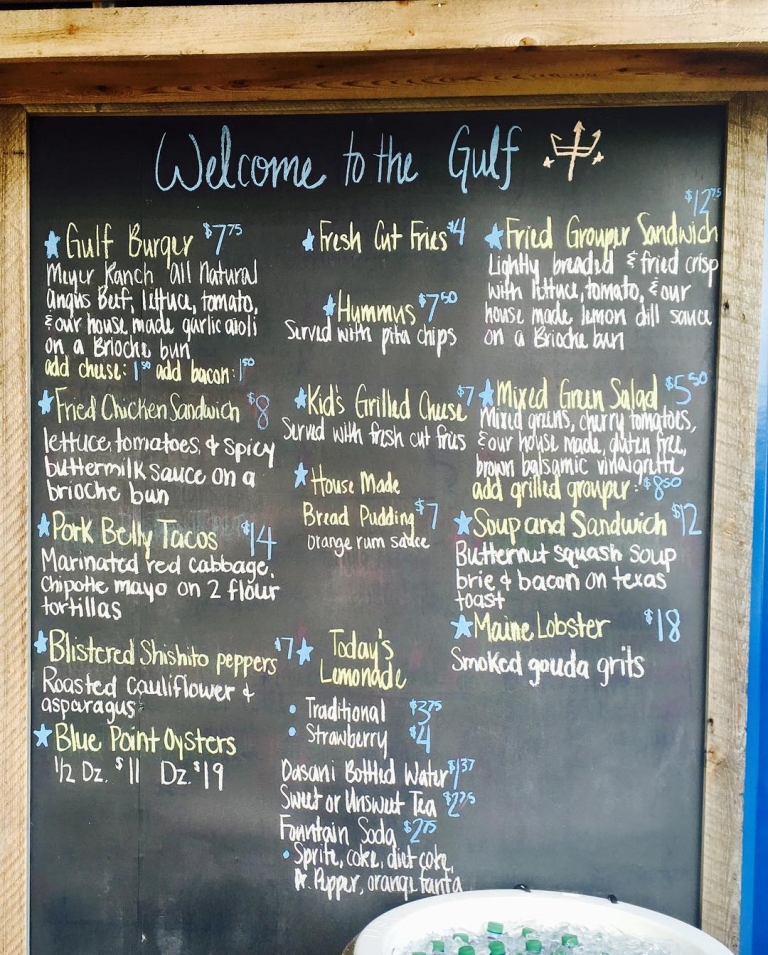 Welcome to the Gulf
Gulf Burger $7.75
Meyer Ranch All Natural
Angus Beef, lettuce, tomato,
& our house made garlic aioli
on a Brioche bun
add cheese: 1.50 add bacon: 1.50
Fried Chicken Sandwich $8
lettuce, tomatoes, & spicy
buttermilk sauce on a
brioche bun
Pork Belly Tacos $14
Marinated red cabbage,
Chipotle mayo on 2 flour
tortillas
Blistered Shishito peppers $7
Roasted cauliflower &
asparagus
Blue Point Oysters
1/2 Dz. $11 Dz. $19
Fresh Cut Fries $4
Hummus $7.50
Served with pita chips
Kid's Grilled Cheese $7
Served with fresh cut fries
House Made
Bread Pudding $7
orange rum sauce
Today's
Lemonade
• Traditional $3.75
• Strawberry $4
Dasani Bottled Water $1.37
Sweet or Unsweet Tea $2.25
Fountain Soda $2.75
• Sprite, coke, diet coke,
Dr. Pepper, orange fanta
$12.75
Fried Grouper Sandwich
Lightly breaded & fried crisp
with lettuce, tomato, & our
house made lemon dill sauce
on a Brioche bun
Mixed Green Salad $5.50
Mixed greens, cherry tomatoes,
& our house made, gluten free,
brown balsamic vinaigrette
add grilled grouper: $8.50
Soup and Sandwich $12
Butternut squash soup
brie & bacon on texas
toast
Maine Lobster $18
Smoked gouda grits